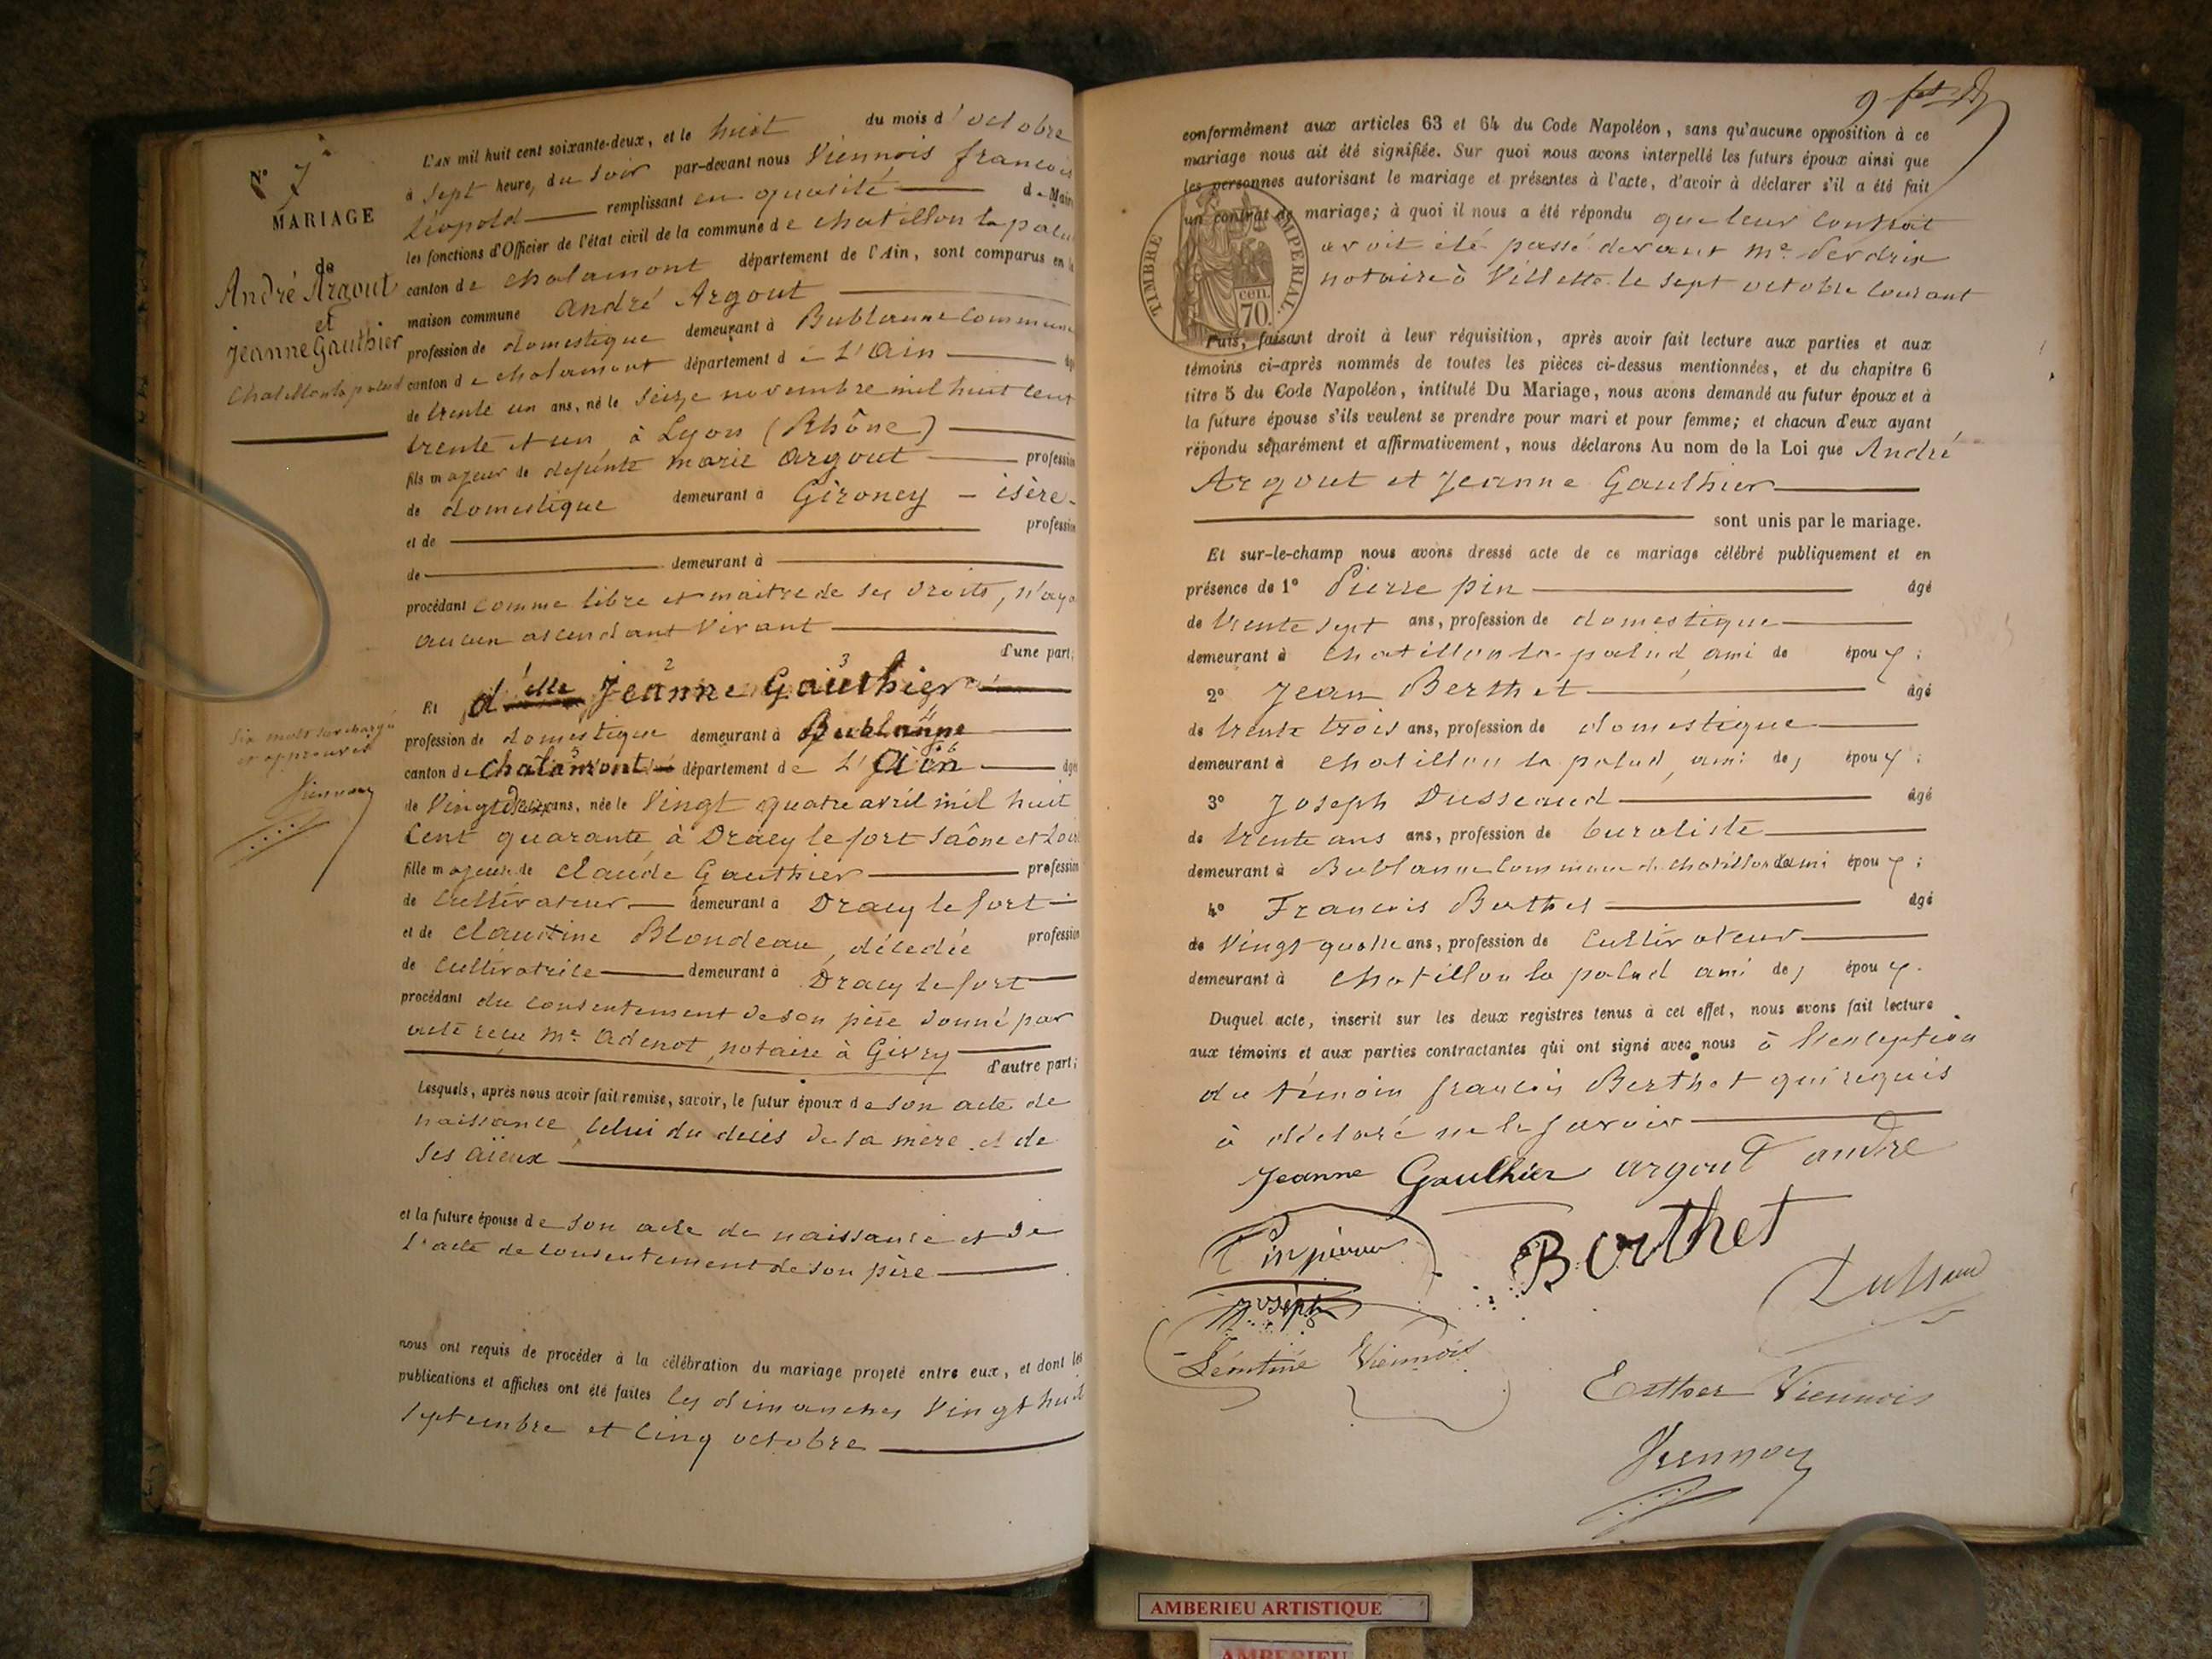 N° 7
MARIAGE
de
André Argout
et
Jeanne Gauthier
Chatillon la palud
L'AN mil huit cent soixante-deux, et le huit du mois d'octobre
à sept heure, du soir par-devant nous Viennois francois
Léopold remplissant en qualité de Maire
les fonctions d'Officier de l'état civil de la commune de chatillon la palu
canton de chalamont département de l'Ain, sont comparus en la
maison commune André Argout
profession de domestique demeurant à Bublanne commune
canton de chalamont département de L'Ain
de trente un ans, né le seize novembre mil huit cent
trente et un à Lyon (Rhône)
fils majeur de defunte marie argout profession
de domestique demeurant à Gironcy - isère -
et de profession
de demeurant à
procédant comme libre et maitre de ses droits, n'aya
aucun ascendant vivant
d'une part;
Et d'elle Jeanne Gauthier
profession de domestique demeurant à Bublanne
canton de chalamont département de L'Ain âgée
de Vingt deux ans, née le Vingt quatre avril mil huit
cent quarante à Dracy le fort Saône et Loir
fille majeure de claude Gauthier profession
de cultivateur demeurant à Dracy le fort
et de claudine Blondeau, décédée profession
de cultivatrice demeurant à Dracy le fort
procédant du consentement de son père donné par
acte reçu me Adenot, notaire à Givry
d'autre part;
six mots surchargé
et approuvés
Viennois
Lesquels, après nous avoir fait remise, savoir, le futur époux de son acte de
naissance, celui du decès de sa mère et de
ses aïeux
et la future épouse de son acte de naissance et de
l'acte de consentement de son père
nous ont requis de procéder à la célébration du mariage projeté entre eux, et dont les
publications et affiches ont été faites les dimanches Vingt huit
septembre et cinq octobre
9
conformément aux articles 63 et 64 du Code Napoléon, sans qu'aucune opposition à ce
mariage nous ait été signifiée. Sur quoi nous avons interpellé les futurs époux ainsi que
les personnes autorisant le mariage et présentes à l'acte, d'avoir à déclarer s'il a été fait
un contrat de mariage; à quoi il nous a été répondu que leur contrat
avoit été passé devant me Perdrix
notaire à Villette le sept octobre courant
TIMBRE IMPERIAL.
cen.
70.
Puis, faisant droit à leur réquisition, après avoir fait lecture aux parties et aux
témoins ci-après nommés de toutes les pièces ci-dessus mentionnées, et du chapitre 6
titre 5 du Code Napoléon, intitulé Du Mariage, nous avons demandé au futur époux et à
la future épouse s'ils veulent se prendre pour mari et pour femme; et chacun d'eux ayant
répondu séparément et affirmativement, nous déclarons Au nom de la Loi que André
Argout et Jeanne Gauthier
sont unis par le mariage.
Et sur-le-champ nous avons dressé acte de ce mariage célébré publiquement et en
présence de 1° Pierre pin âgé
de trente sept ans, profession de domestique
demeurant à chatillon la palud ami de époux;
2° Jean Berthet âgé
de trente trois ans, profession de domestique
demeurant à chatillon la palud, ami des époux;
3° Joseph Dusseaud âgé
de trente ans ans, profession de buraliste
demeurant à Bublanne commune de chatillon la ami époux;
4° Francois Berthet âgé
de Vingt quatre ans, profession de cultivateur
demeurant à chatillon la palud ami des époux.
Duquel acte, inscrit sur les deux registres tenus à cet effet, nous avons fait lecture
aux témoins et aux parties contractantes qui ont signé avec nous à l'exception
du témoin francois Berthet qui requis
à déclaré ne le savoir
Jeanne Gauthier argout andre
Pin pierre Berthet
joseph Dussaud
Léontine Viennois
Esther Viennois
Viennois
AMBERIEU ARTISTIQUE
AMBERIEU